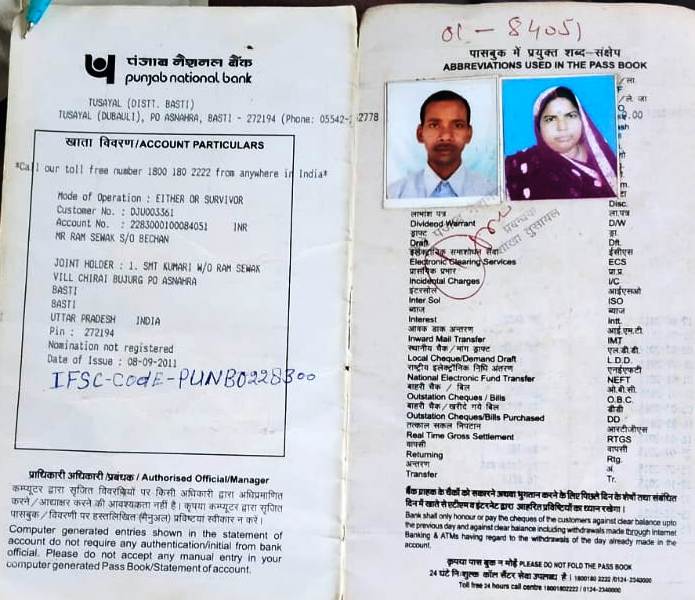 पंजाब नैशनल बैंक
punjab national bank
TUSAYAL (DISTT. BASTI)
TUSAYAL (DUBAULI), PO ASNAHRA, BASTI - 272194 (Phone: 05542-
2778
खाता विवरण/ACCOUNT PARTICULARS
*Call our toll free number 1800 180 2222 from anywhere in India*
Mode of Operation : EITHER OR SURVIVOR
Customer No. : DJU003361
Account No. : 2283000100084051 INR
MR RAM SEWAK S/O BECHAN
JOINT HOLDER : 1. SMT KUMARI W/O RAM SEWAK
VILL CHIRAI BUJURG PO ASNAHRA
BASTI
BASTI
UTTAR PRADESH INDIA
Pin : 272194
Nomination not registered
Date of Issue : 08-09-2011
IFSC-Code-PUNB0228300
प्राधिकारी अधिकारी /प्रबंधक / Authorised Official/Manager
कम्प्यूटर द्वारा सृजित विवरणियों पर किसी अधिकारी द्वारा अधिप्रमाणित
करने / आद्याक्षर करने की आवश्यकता नहीं है। कृपया कम्प्यूटर द्वारा सृजित
पासबुक / विवरणी पर हस्तलिखित (मैनुअल) प्रविष्टियां स्वीकार न करें।
Computer generated entries shown in the statement of
account do not require any authentication/initial from bank
official. Please do not accept any manual entry in your
computer generated Pass Book/Statement of account.
01 - 84051
पासबुक में प्रयुक्त शब्द-संक्षेप
ABBREVIATIONS USED IN THE PASS BOOK
Disc.
लाभांश पत्र ला.पत्र
Dividend Warrant D/W
ड्राफ्ट ड्रा.
Draft Dft.
इलेक्ट्रॉनिक समाशोधन सेवा ईसीएस
Electronic Clearing Services ECS
प्रासंगिक प्रभार प्रा.प्र.
Incidental Charges I/C
इंटरसोल आईएसओ
Inter Sol ISO
ब्याज ब्याज
Interest Intt.
आवक डाक अन्तरण आई.एम.टी.
Inward Mail Transfer IMT
स्थानीय चैक / मांग ड्राफ्ट एल.डी.डी.
Local Cheque/Demand Draft L.D.D.
राष्ट्रीय इलेक्ट्रोनिक निधि अंतरण एनईएफटी
National Electronic Fund Transfer NEFT
बाहरी चैक / बिल ओ.बी.सी.
Outstation Cheques / Bills O.B.C.
बाहरी चैक / खरीदे गये बिल डीडी
Outstation Cheques/Bills Purchased DD
तत्काल सकल निपटान आरटीजीएस
Real Time Gross Settlement RTGS
वापसी वापसी
Returning Rtg.
अन्तरण अं.
Transfer Tr.
बैंक ग्राहक के चैकों को सकारने अथवा भुगतान करने के लिए पिछले दिन के शेषों तथा संबंधित
दिन में खाते से एटीएम व इंटरनेट द्वारा आहरित प्रविष्टियों का ध्यान रखेगा।
Bank shall only honour or pay the cheques of the customers against clear balance upto
the previous day and against clear balance including withdrawals made through Internet
Banking & ATMs having regard to the withdrawals of the day already made in the
account.
कृपया पास बुक न मोड़ें PLEASE DO NOT FOLD THE PASS BOOK
24 घंटे निःशुल्क कॉल सेंटर सेवा उपलब्ध है। 1800180 2222 /0124-2340000
Toll free 24 hours call centre 18001802222 / 0124-2340000